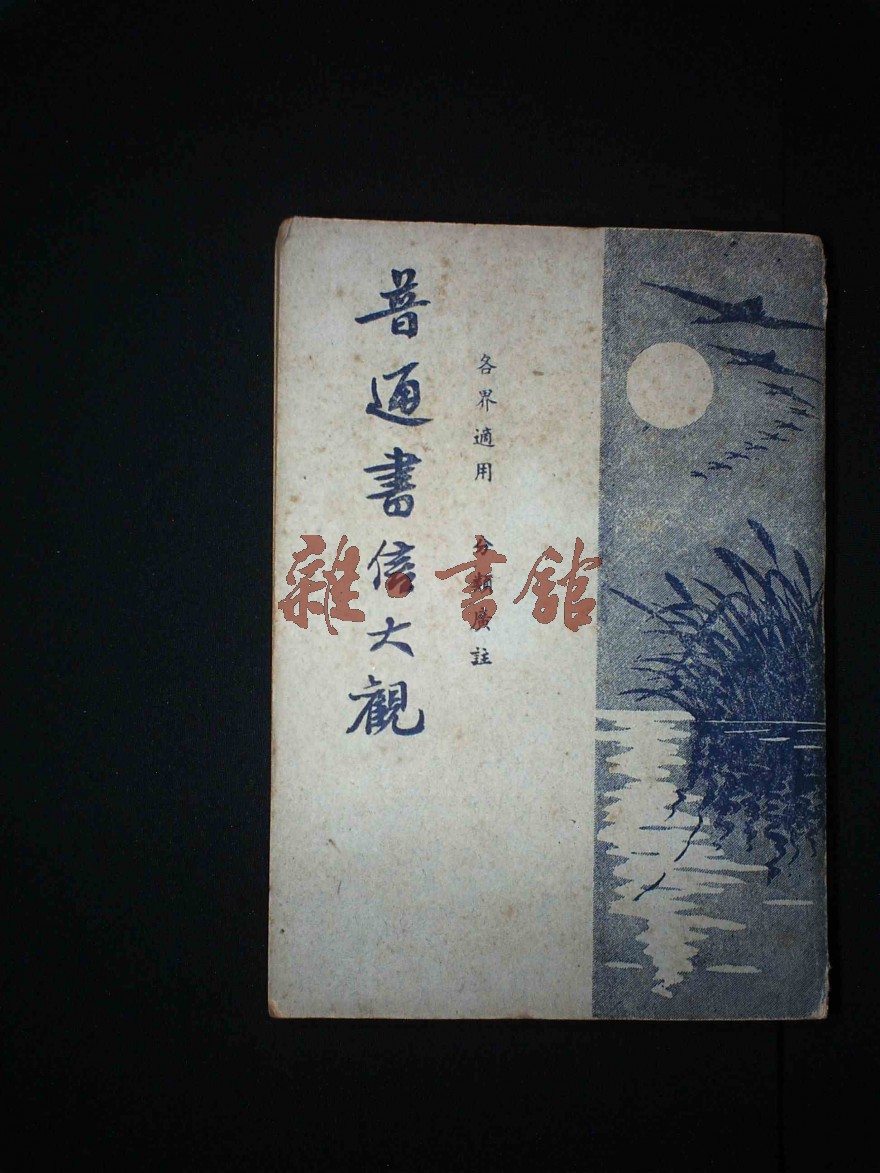 各界適用 分類廣註
普通書信大觀
雜·書館